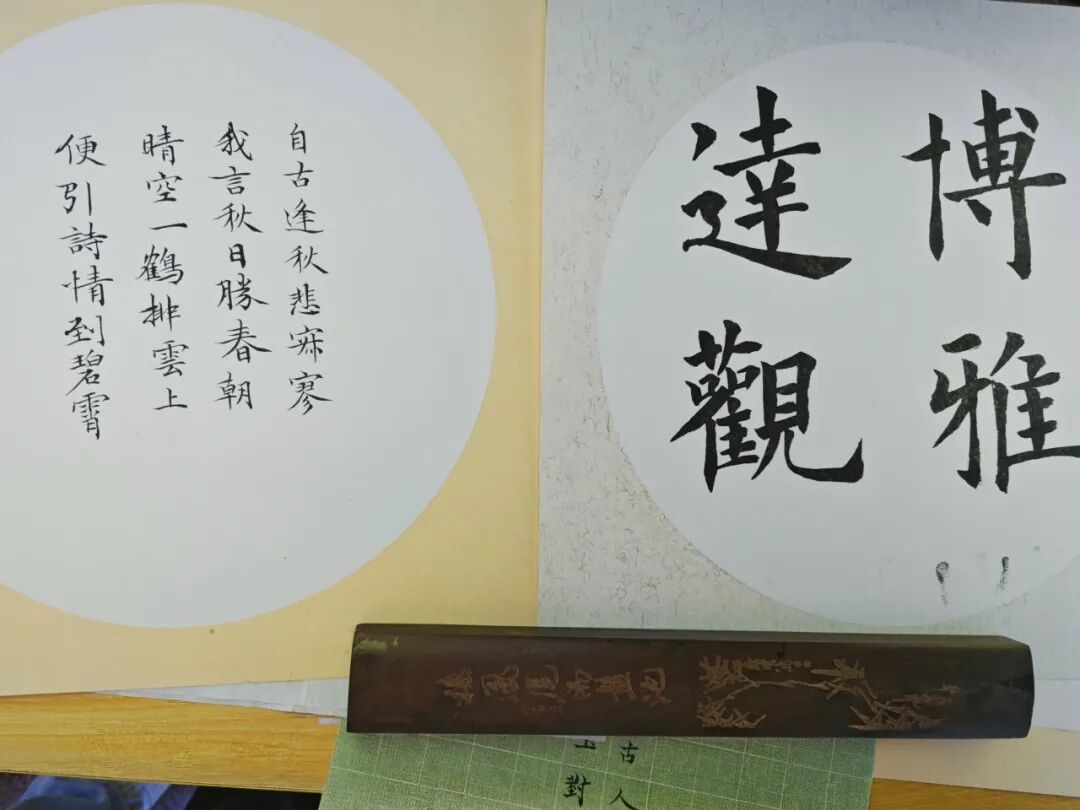 博雅
達觀
自古逢秋悲寂寥
我言秋日勝春朝
晴空一鶴排雲上
便引詩情到碧霄
古人
對